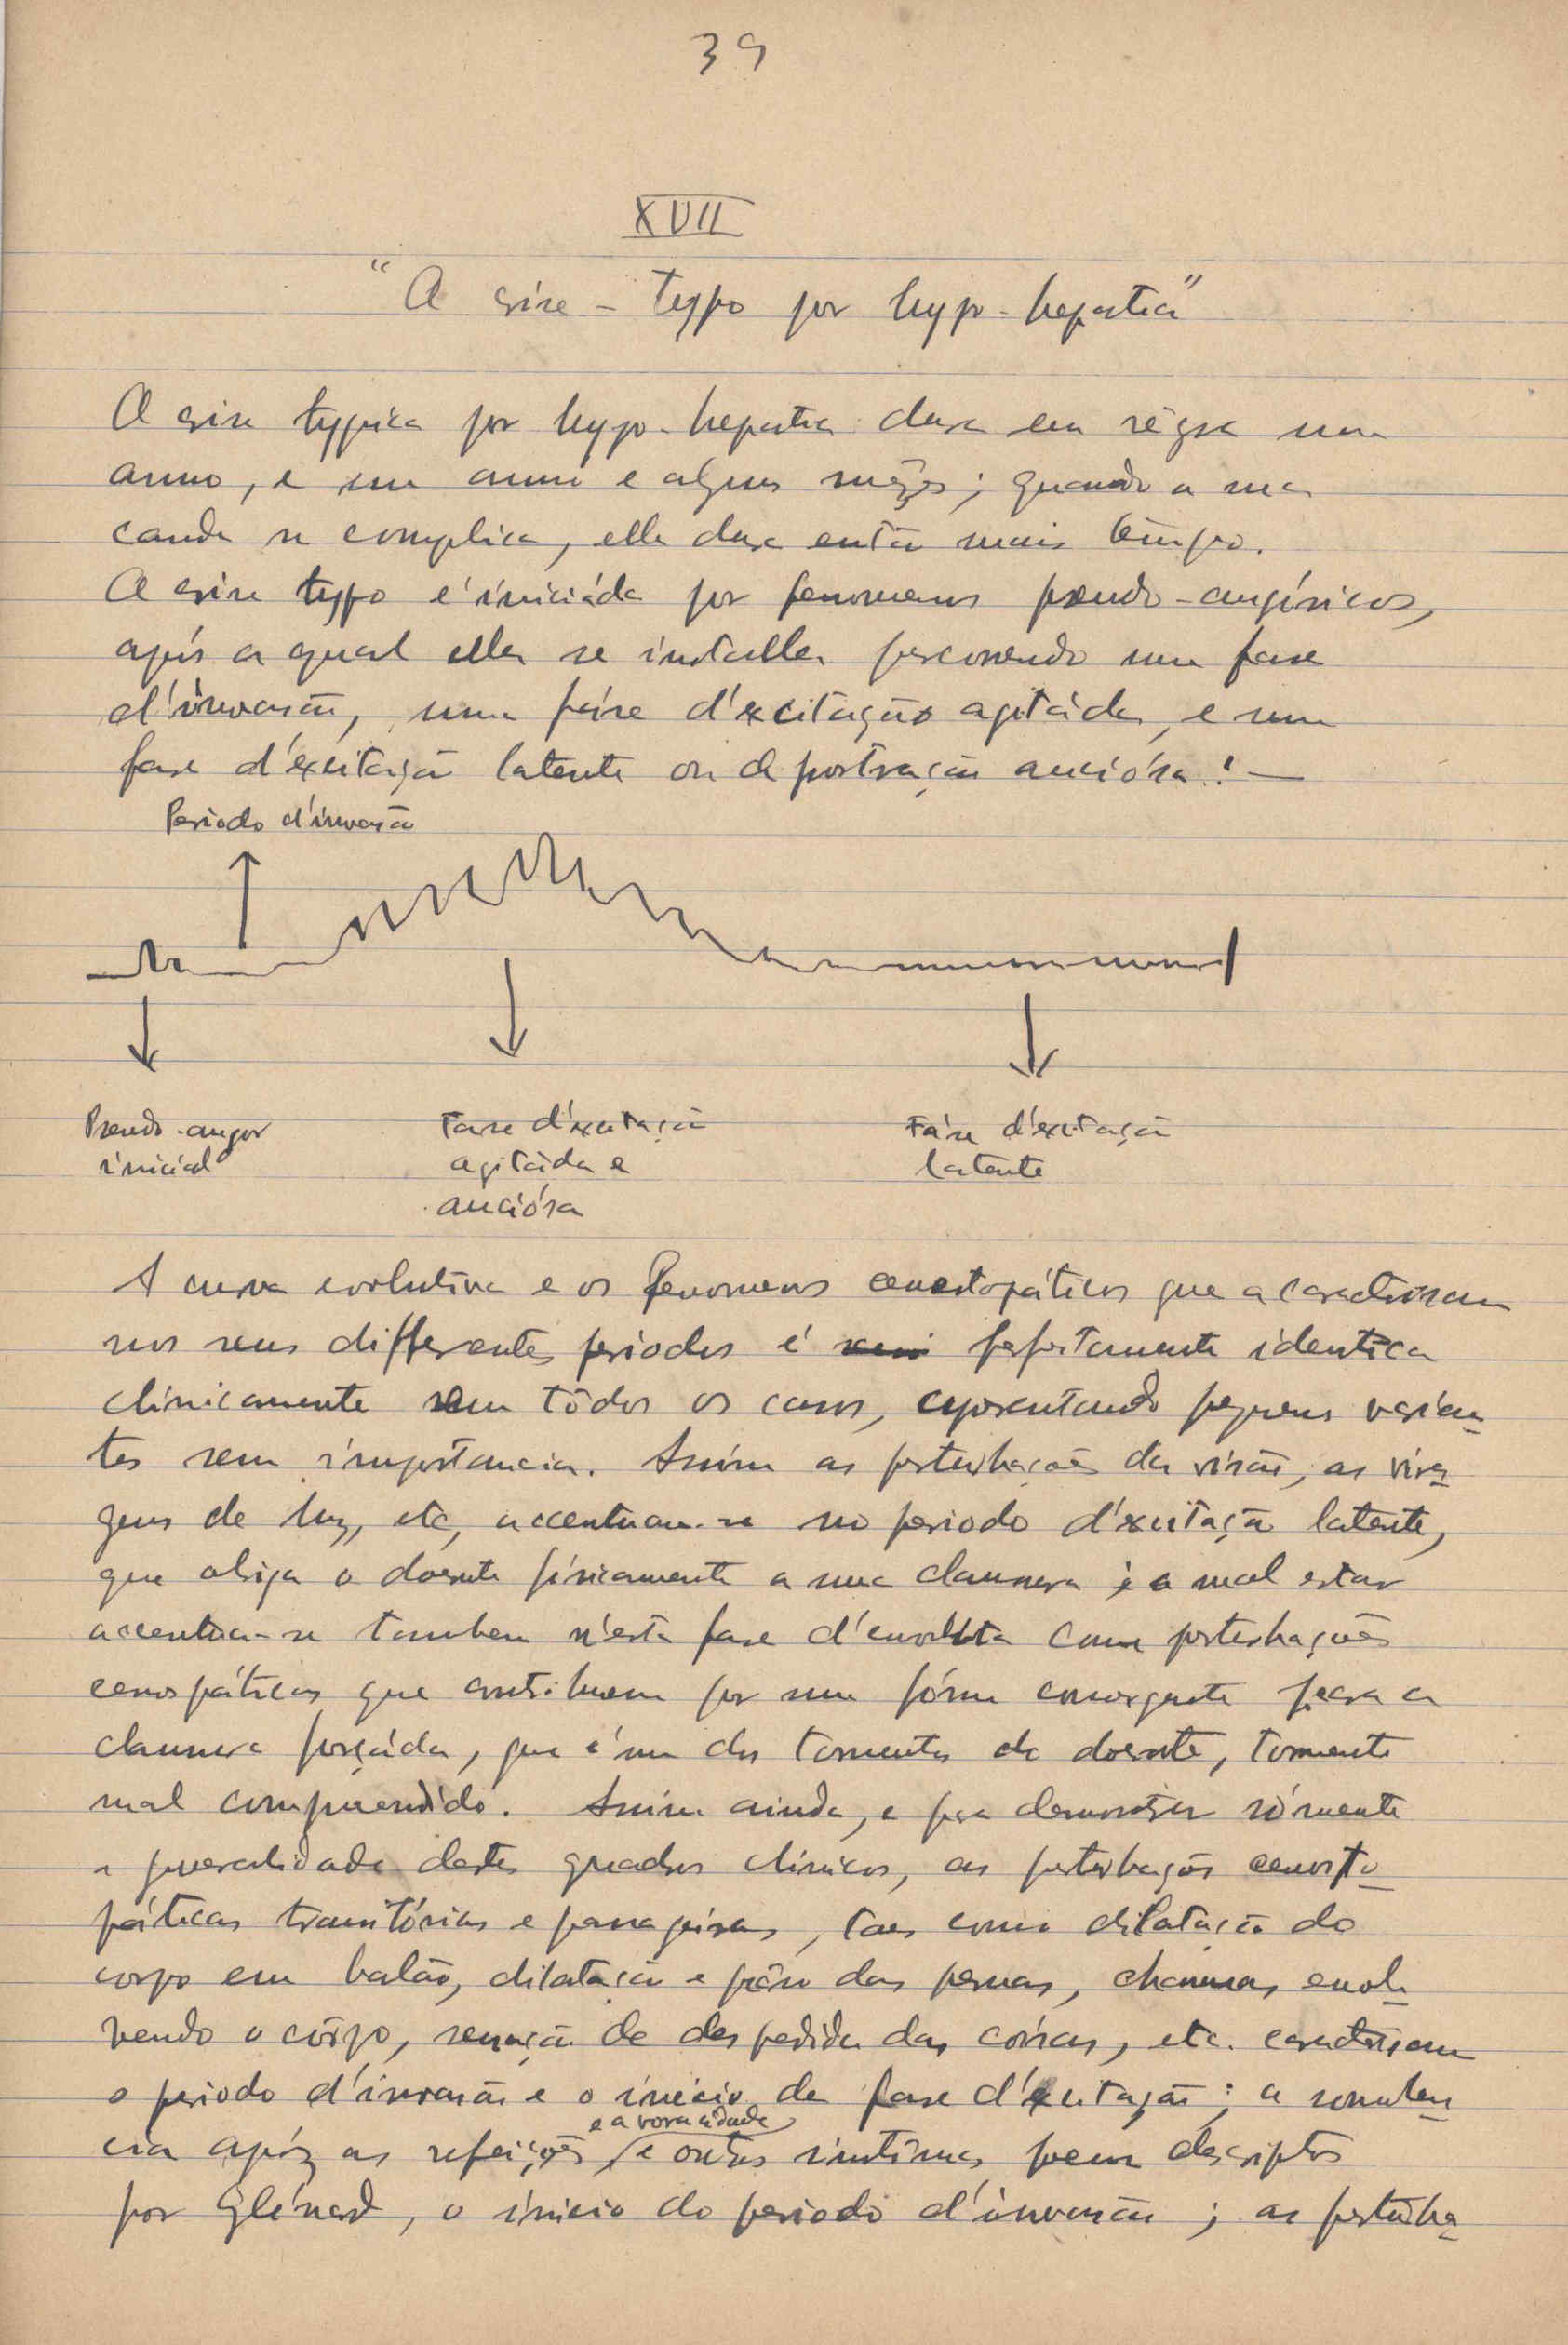 39
XVII
"A crise - typo por hypo-hepatia"
A crise typica por hypo-hepatia dura em régra um
anno, e um anno e alguns mezes; quando a ma
cauda se complica, ella dura então mais tempo.
A crise typo é iniciáda por fenomenos pseudo-angínicos,
após a qual ella se installa percorrendo uma fase
d'invasão, uma fáse d'excitação agitáda, e uma
fase d'éxcitação latente ou de postração anciósa: —
Periodo d'invasão
Pseudo-angor
inicial
Fase d'excitação
agitàda e
anciósa
Fáse d'excitação
latente
A curva evolutiva e os fenomenos cenestopáticos que a caracterisam
nos seus differentes periodos é perfeitamente identica
clinicamente em tôdos os casos, apresentando pequenas varian-
tes sem importancia. Assim as perturbações da visão, as vira-
gens de luz, etc, accentuam-se no periodo d'excitação latente,
que obriga o doente fisicamente a uma clausura; o mal estar
accentua-se tambem n'esta fase d'envolta com perturbações
cenospáticas que contribuem por uma fórma para a
clausura forçáda, que é um dos tormentos do doente, tormento
mal comprehendido. Assim ainda, e para demonstrar sómente
a destes quadros clinicos, as perturbações cenesto-
páticas transitórias e passageiras, taes como dilatação do
corpo em balão, dilatação e pêso das pernas, chammas envol-
vendo o côrpo, sensação de despedida das coisas, etc. caracterisam
o periodo d'invasão e o inicio da fase d'excitação; a sonolen-
cia após as refeições e a voracidade e outros sintomas bem descriptos
por Glénard, o inicio do periodo d'invasão; as perturba-